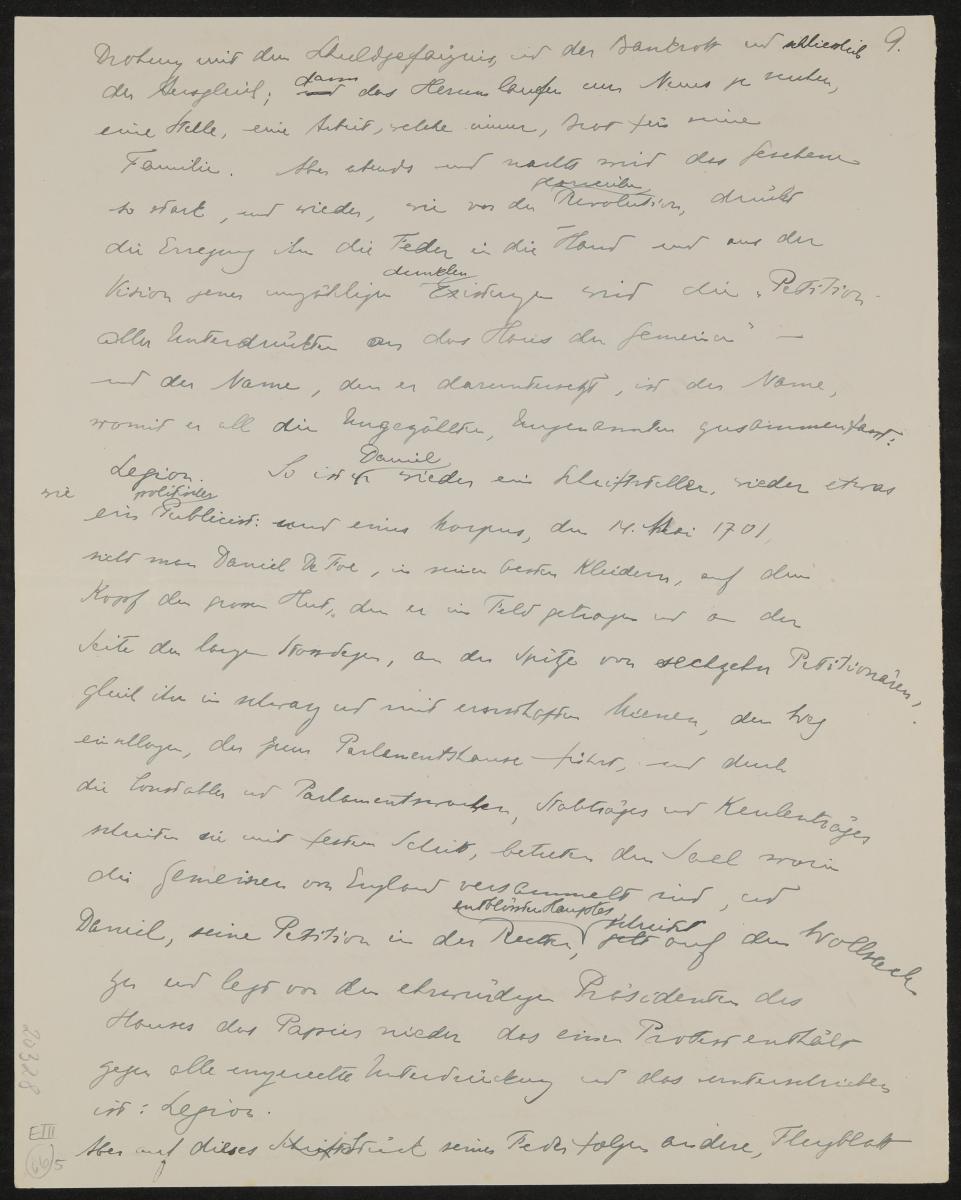 9.
Drohung mit dem Schuldgefängnis, und der Bankrott und schliesslich
der Ausgleich; dann das Herumlaufen um Neues zu suchen,
eine Stelle, eine Arbeit, welche immer, Brot für seine
Familie. Aber abends und nachts wird das Gesehene
so stark, und wieder, wie vor der glorreichen Revolution, drückt
die Erregung ihm die Feder in die Hand und aus der
Vision jener unzähligen dunklen Existenzen wird die "Petition
aller Unterdrückten an das Haus der Gemeinen" —
und der Name, den er daruntersetzt, ist der Name,
womit er all die Ungezählten, Ungenannten zusammenfasst:
Legion. So ist Daniel wieder ein Schriftsteller, wieder etwas
wie ein politischer Publicist: und eines Morgens, den 14. Mai 1701,
sieht man Daniel De Foe, in seinen besten Kleidern, auf dem
Kopf den grossen Hut, den er im Feld getragen und an der
Seite den langen Stossdegen, an der Spitze von sechzehn Petitionären,
gleich ihm in schwarz und mit ernsthaften Mienen, den Weg
einschlagen, der zum Parlamentshause führt, und durch
die Constables und Parlamentswachen, Stabträger und Keulenträger
schreiten sie mit festem Schritt, betreten den Saal worin
die Gemeinen von England versammelt sind, und
Daniel, seine Petition in der Rechten, entblössten Hauptes schreitet auf den Wollsack
zu und legt vor den ehrwürdigen Präsidenten des
Hauses das Papier nieder das einen Protest enthält
gegen alle ungerechte Unterdrückung und das unterschrieben
ist: Legion.
Aber auf dieses Schriftstück seiner Feder folgen andere, Flugblatt
20328
EIII
66 5